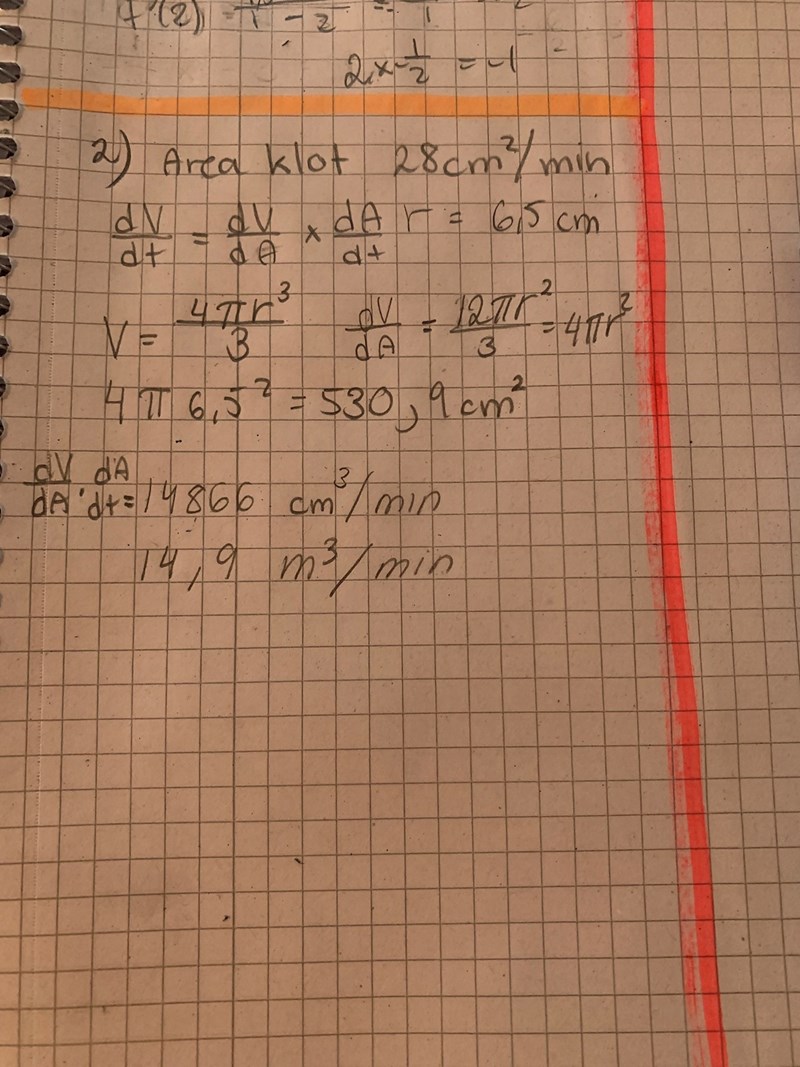 f'(2)
2x-1/2 = -1
2) Area klot 28cm²/min
dV/dt = dV/dA × dA/dt r = 6,5 cm
V = 4πr³/3 dV/dA = 12πr²/3 = 4πr²
4π 6,5² = 530,9 cm²
dV/dA · dA/dt = 14866 cm³/min
14,9 m³/min